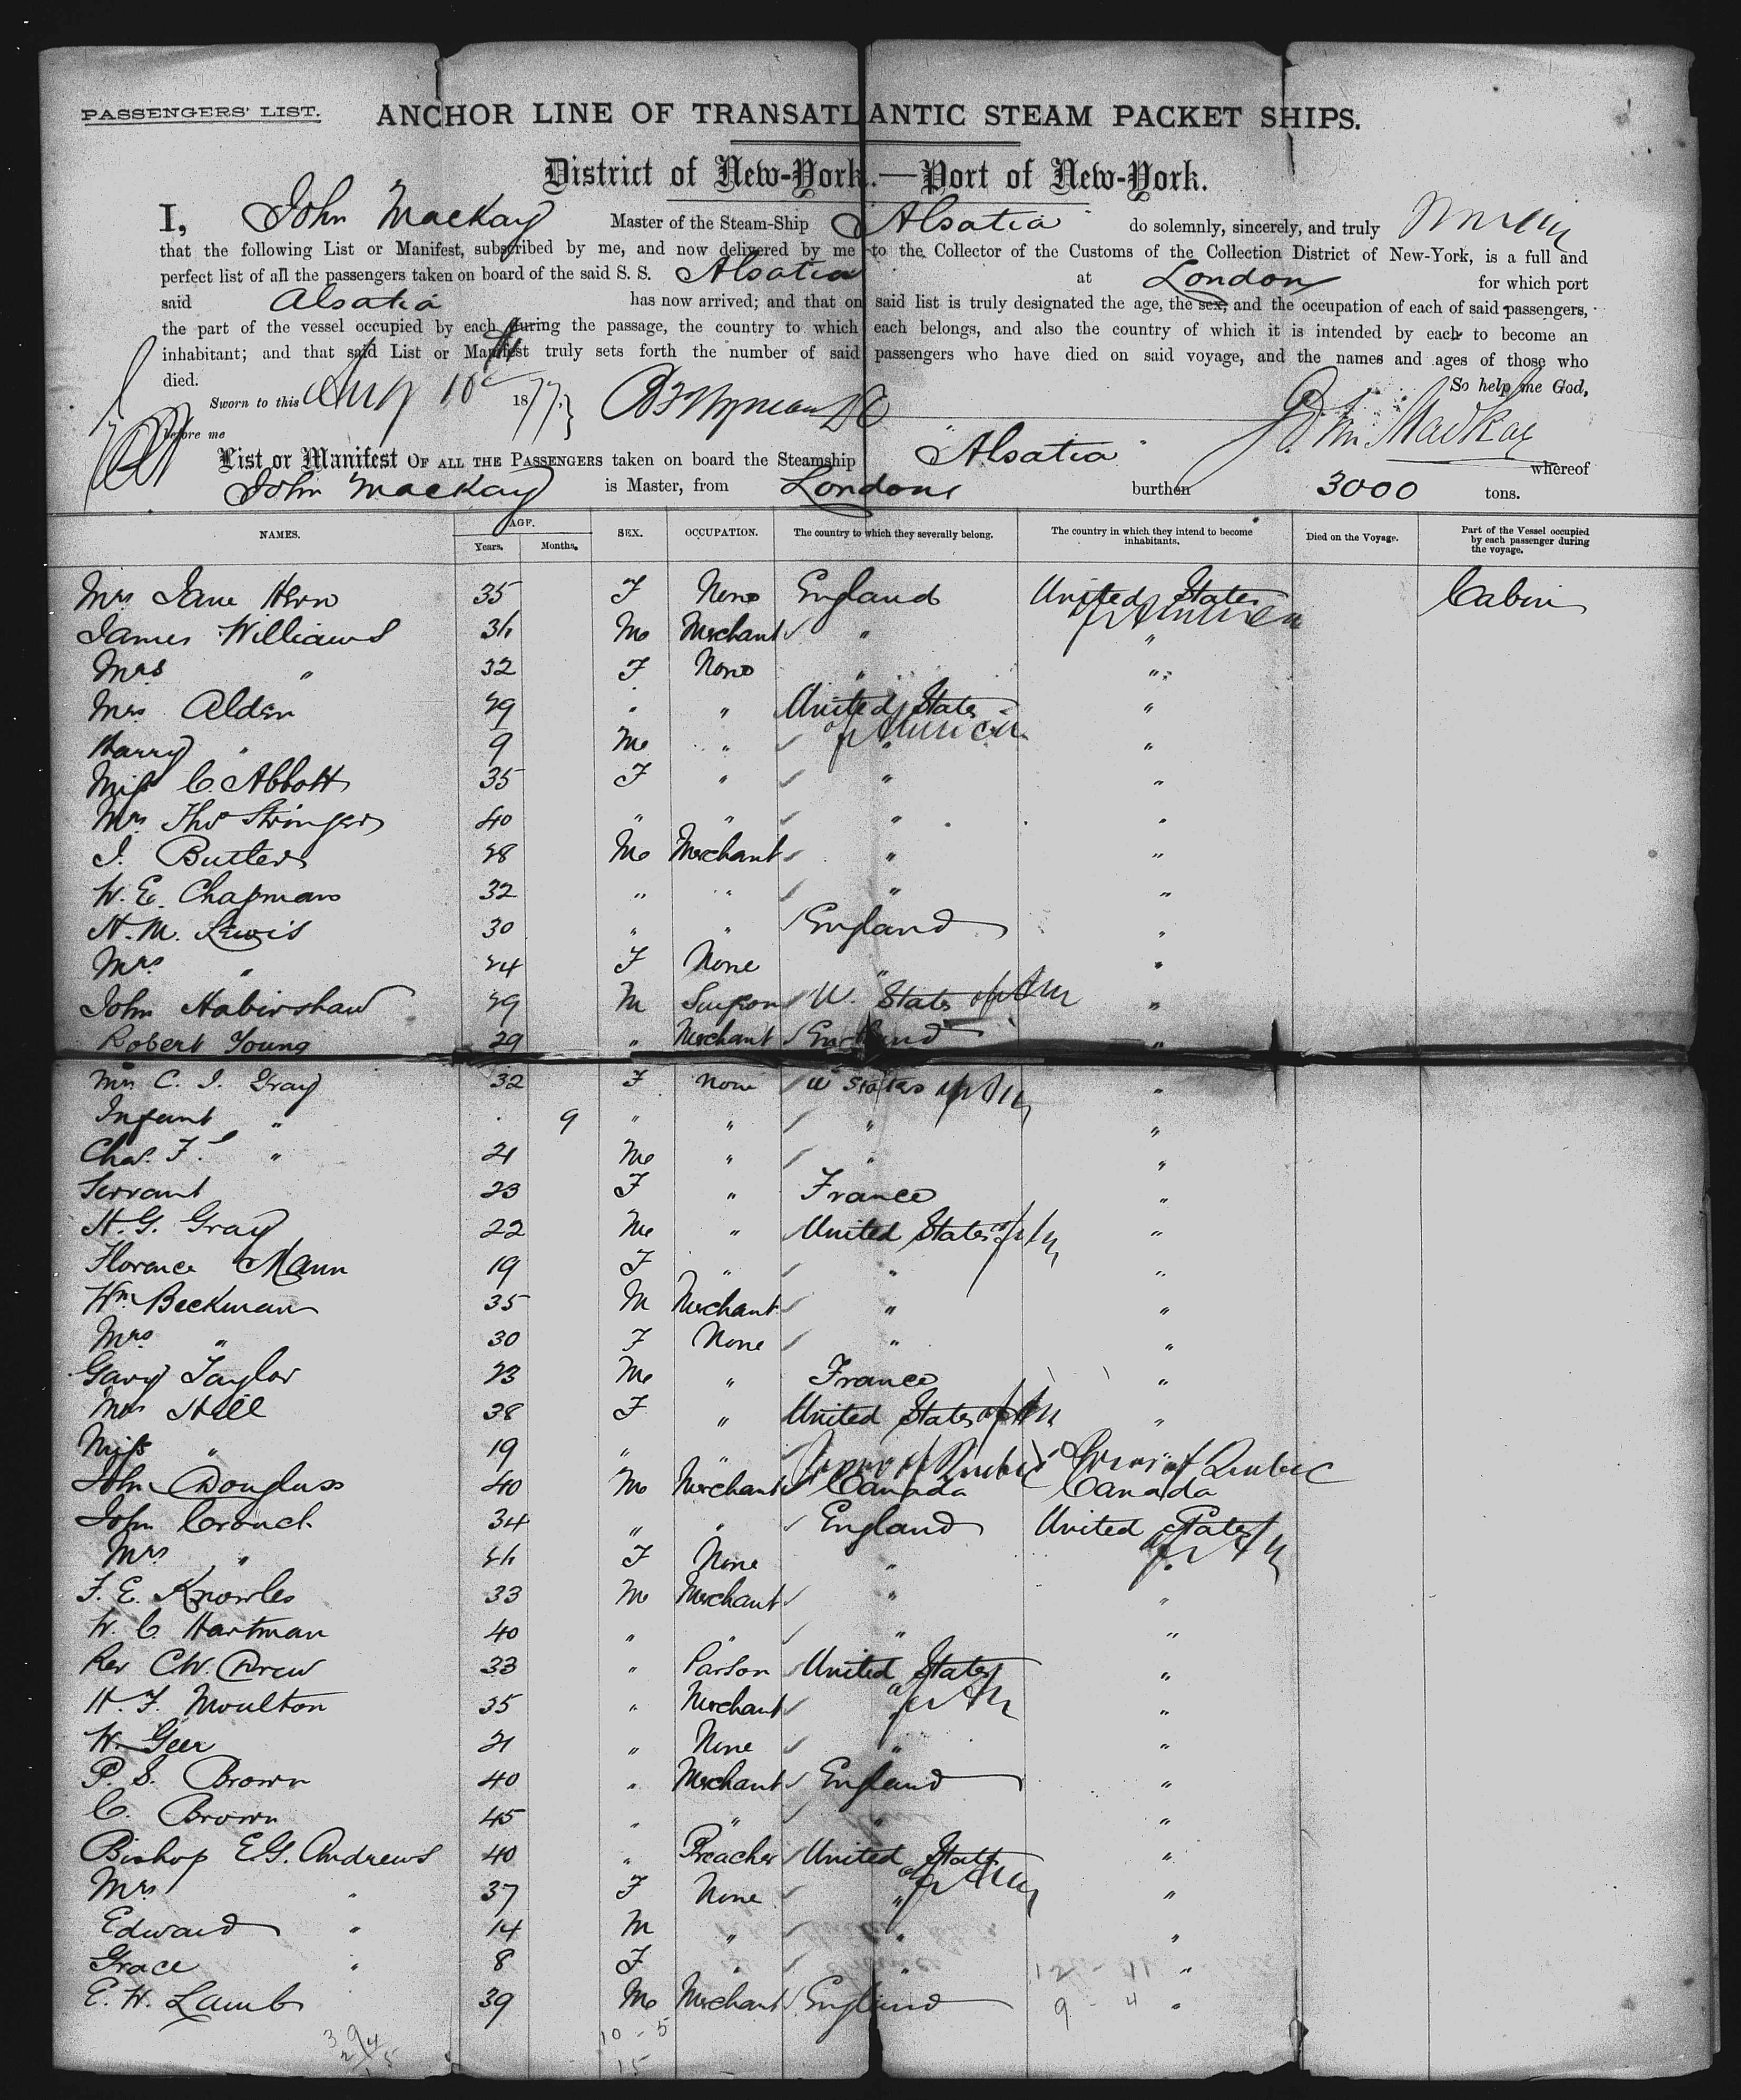 PASSENGERS' LIST. ANCHOR LINE OF TRANSATLANTIC STEAM PACKET SHIPS.
District of New-York.—Port of New-York.
I, John Mackay Master of the Steam-Ship Alsatia do solemnly, sincerely, and truly
that the following List or Manifest, subscribed by me, and now delivered by me to the Collector of the Customs of the Collection District of New-York, is a full and
perfect list of all the passengers taken on board of the said S. S. Alsatia at London for which port
said Alsatia has now arrived; and that on said list is truly designated the age, the sex, and the occupation of each of said passengers,
the part of the vessel occupied by each during the passage, the country to which each belongs, and also the country of which it is intended by each to become an
inhabitant; and that said List or Manifest truly sets forth the number of said passengers who have died on said voyage, and the names and ages of those who
died. So help me God,
Sworn to this Aug 10th 1877, John Mackay
before me
List or Manifest OF ALL THE PASSENGERS taken on board the Steamship "Alsatia" whereof
John Mackay is Master, from London burthen 3000 tons.
NAMES. AGE. Years. Months. SEX. OCCUPATION. The country to which they severally belong. The country in which they intend to become inhabitants. Died on the Voyage. Part of the Vessel occupied by each passenger during the voyage.
Mrs Jane Hern 35 F None England United States of America Cabin
James Williams 36 M Merchant " "
Mrs " 32 F None " "
Mrs Alden 29 " " United States of America "
Harry " 9 M " " "
Miss C. Abbott 35 F " " "
Mrs Thos Stringer 40 " " " "
J. Butler 28 M Merchant " "
W. E. Chapman 32 " " " "
H. M. Lewis 30 " " England "
Mrs " 24 F None " "
John Habirshaw 29 M Surgeon U. States of Am "
Robert Young 29 " Merchant England "
Mrs C. J. Gray 32 F None U States of Am "
Infant " 9 " " " "
Chas. F. " 21 M " " "
Servant 23 F " France "
H. G. Gray 22 M " United States of Am "
Florence Mann 19 F " " "
Wm Beckman 35 M Merchant " "
Mrs " 30 F None " "
Gary Taylor 23 M " France "
Mrs Hill 38 F " United States of Am "
Miss " 19 " " "
John Douglass 40 M Merchant Prov of Quebec Canada Prov of Quebec Canada
John Crouch 34 " " England United States of Am
Mrs " 26 F None " "
F. E. Knowles 33 M Merchant " "
W. C. Hartman 40 " " " "
Rev C.W. Drew 33 " Parson United States of Am "
H. F. Moulton 35 " Merchant " "
W. Geer 21 " None " "
P. S. Brown 40 " Merchant England "
C. Brown 45 " " " "
Bishop E.G. Andrews 40 " Preacher United States of Am "
Mrs " 37 F None " "
Edward " 14 M " " "
Grace " 8 F " " "
E. W. Lamb 39 M Merchant England "
12 - 11
9 - 4
10 - 5
15